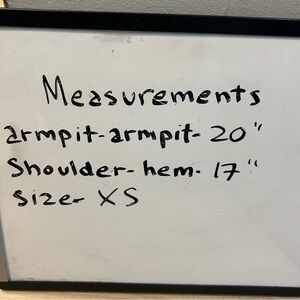 Measurements
armpit-armpit- 20"
Shoulder-hem- 17"
Size- XS